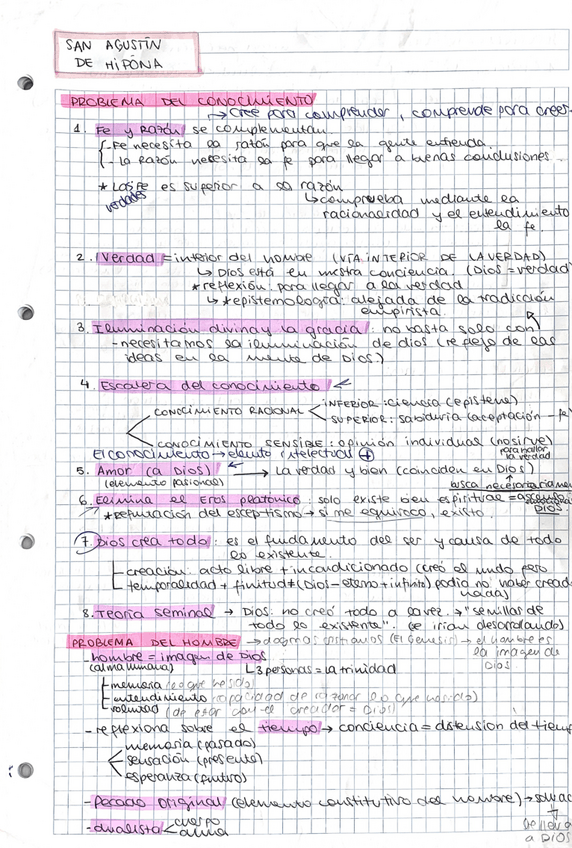 SAN AGUSTÍN
DE HIPONA
PROBLEMA DEL CONOCIMIENTO
↳ Cree para comprender, comprende para creer
1. Fe y Razón se complementan.
- Fe necesita la razón para que la gente entienda.
- La Razón necesita la fe para llegar a buenas conclusiones
* Las fe es superior a la razón
verdades
↳ comprueba mediante la
racionalidad y el entendimiento
la fe
2. Verdad = interior del hombre (VÍA INTERIOR DE LA VERDAD)
↳ Dios está en nuestra conciencia. (Dios = verdad)
* reflexión: para llegar a la verdad
↳ * epistemología: alejada de la tradicción
empirista.
3. Iluminación divina y la gracia: no basta solo con
- necesitamos la iluminación de dios (reflejo de las
ideas en la mente de Dios)
4. Escalera del conocimiento
CONOCIMIENTO RACIONAL
INFERIOR: ciencia (episteme)
SUPERIOR: sabiduría (aceptación - fe
CONOCIMIENTO SENSIBLE: opinión individual (no sirve)
El conocimiento → elemento intelectual +
para hallar
la verdad
5. Amor (a Dios) → La verdad y bien (coinciden en Dios)
(elemento pasional)
busca necesariamen
6. Elimina el Eros platónico: solo existe bien espiritual =
DIOS
* Refutación del esceptismo → si me equivoco, existo.
7. Dios crea todo: es el fundamento del ser y causa de todo
lo existente.
- creación: acto libre + incondicionado (creó el mundo pero
- temporalidad + finitud ≠ (Dios - eterno + infinito) podía no haber cread
nada)
8. Teoría seminal → Dios: no creó todo a la vez. → "semillas de
todo lo existente". (se irían desarrollando)
PROBLEMA DEL HOMBRE → dogmas cristianos (El Génesis) → el hombre es
la imagen de
Dios
- hombre = imagen de Dios
(alma humana)
↳ 3 personas = la trinidad
- memoria (lo que ha sido)
- entendimiento (capacidad de razonar lo que ha sido)
- voluntad (de estar con el creador = Dios)
- reflexiona sobre el tiempo → conciencia = distensión del tiemp
memoria (pasado)
sensación (presente)
esperanza (futuro)
- Pecado original (elemento constitutivo del hombre) → salvac
- dualista
cuerpo
alma
a DIOS